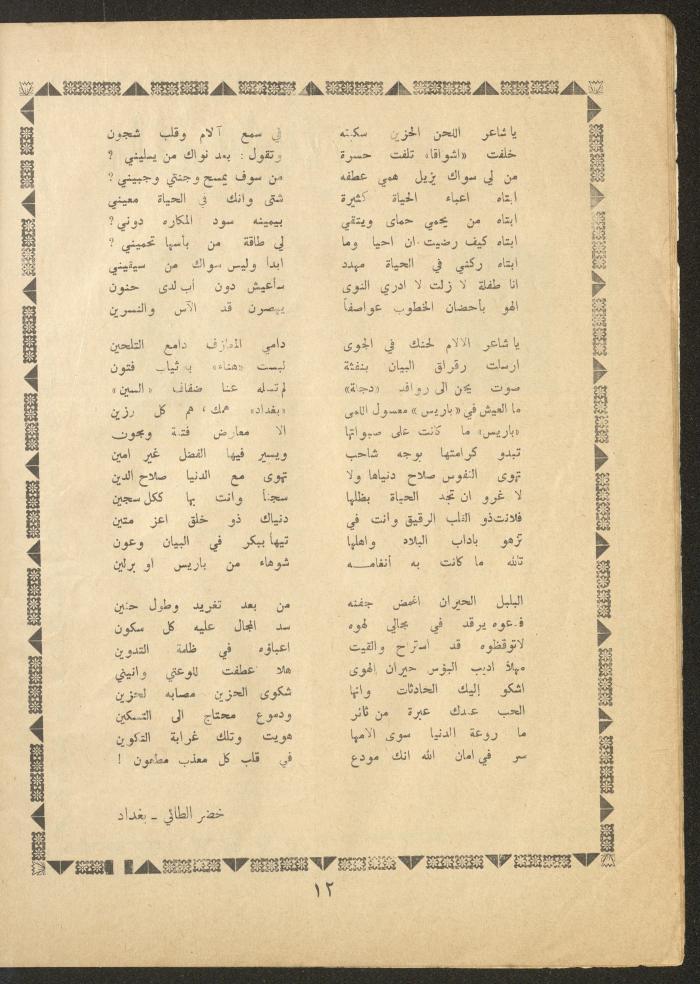 يا شاعر اللحن الحزين سكبته في سمع آلام وقلب شجون
خلفت «اشواقا» تلفت حسرة وتقول: بعد نواك من يسليني؟
من لي سواك يزيل همي عطفه من سوف يمسح وجنتي وجبيني؟
ابتاه اعباء الحياة كثيرة شتى وانك في الحياة معيني
ابتاه من يحمي حماى ويتقي بيمينه سود المكاره دوني؟
ابتاه كيف رضيت ان احيا وما لي طاقة من بأسها تحميني؟
ابتاه ركني في الحياة مهدد ابدا وليس سواك من سيقيني
انا طفلة لا زلت لا ادري النوى سأعيش دون أب لدى حنون
الهو بأحضان الخطوب عواصفاً يهصرن قد الآس والنسرين
يا شاعر الالام لحنك في الجوى دامي المعازف دامع التلحين
ارسلت رقراق البيان بنفثة لبست «هناء» به ثياب فتون
صوت يحن الى روافد «دجلة» لم تسله عنا ضفاف «السين»
ما العيش في «باريس» معسول اللمى «بغداد» همك، هم كل رزين
«باريس» ما كانت على صبواتها الا معارض فتنة ومجون
تبدو كرامتها بوجه شاحب ويسير فيها الفضل غير امين
تهوى النفوس صلاح دنياها ولا تهوى مع الدنيا صلاح الدين
لا غرو ان تجد الحياة بظلها سجناً وانت بها ككل سجين
فلانت ذو القلب الرقيق وانت في دنياك ذو خلق اعز متين
تزهو باداب البلاد واهلها تيها ببكر في البيان وعون
تالله ما كانت به أنغامـه شوهاء من باريس او برلين
البلبل الحيران اغمض جفنه من بعد تغريد وطول حنين
فدعوه يرقد في مجالي لهوه سد المجال عليه كل سكون
لا توقظوه قد استراح والقيت اعباؤه في ظلمة التدوين
مهلا اديب البؤس حيران الهوى هلا عطفت للوعتي وانيني
اشكو إليك الحادثات وانها شكوى الحزين مصابه لحزين
الحب عندك عبرة من ثائر ودموع محتاج الى التسكين
ما روعة الدنيا سوى الامها هويت وتلك غرابة التكوين
سر في امان الله انك مودع في قلب كل معذب مطعون!
خضر الطائي ـ بغداد
١٢